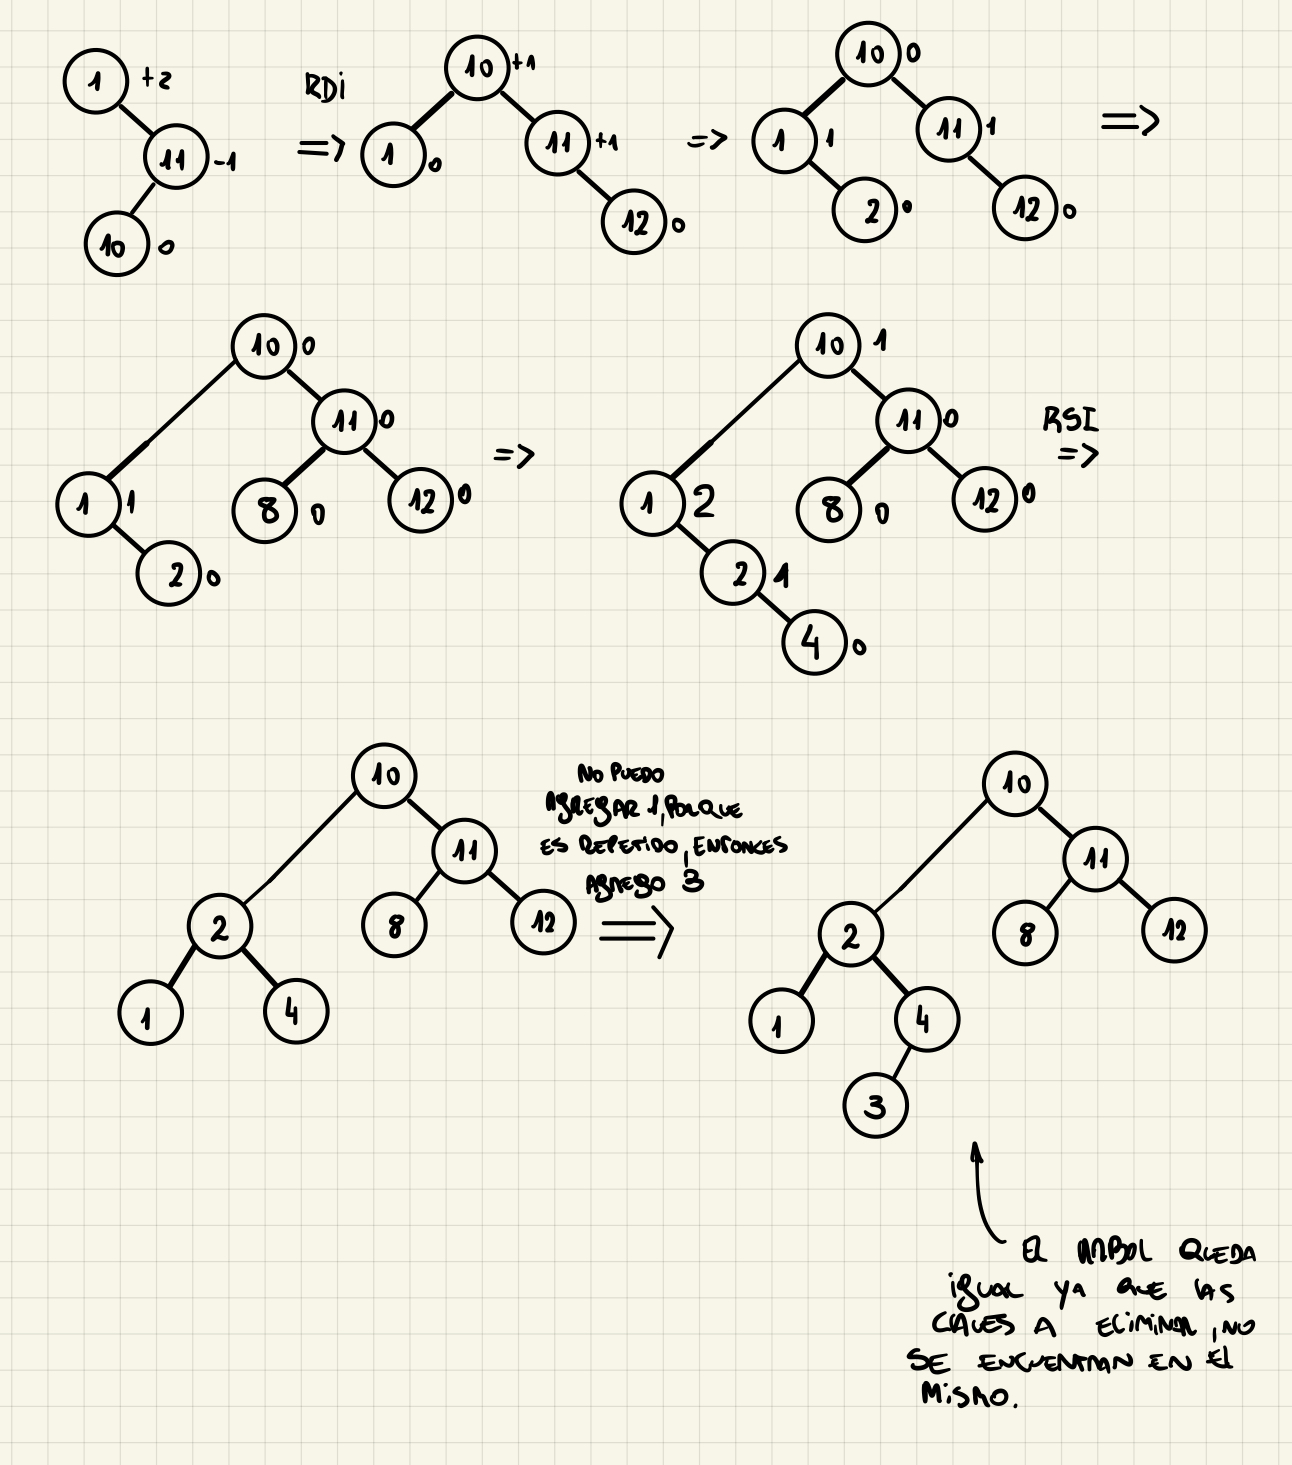 1 +2
11 -1
10 0
RDi
=>
10 +1
1 0
11 +1
12 0
=>
10 0
1 1
11 1
2 0
12 0
=>
10 0
11 0
1 1
8 0
12 0
2 0
=>
10 1
11 0
1 2
8 0
12 0
2 1
4 0
RSI
=>
10
11
2
8
12
1
4
NO PUEDO
AGREGAR 1, PORQUE
ES REPETIDO, ENTONCES
AGREGO 3
=>
10
11
2
8
12
1
4
3
EL ARBOL QUEDA
igual YA QUE LAS
CLAVES A ELIMINAR, NO
SE ENCUENTRAN EN El
MiSMO.